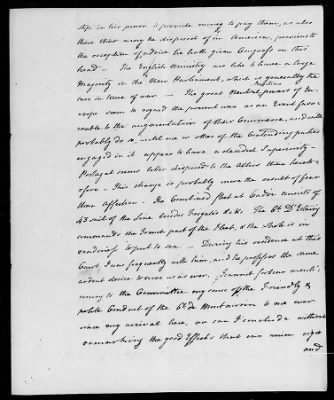 step in his power to provide money to pay them, as also
those that may be disposed of in America, previous to
the reception of advice he hath given Congress on this
head — The English ministry are like to have a large
Majority in the New Parliament, which is generally the
case in time of war — The great Neutral powers of
Europe seem to regard the present war as an Event favor
able to the augmentation of their Commerce, and will
probably do so, until one or other of the Contending parties
engaged in it appear to have a decided Superiority —
Portugal seems better disposed to the Allies than heret
ofore — This change is probably more the result of fear
than affection. The Combined fleet at Cadiz consists of
43 sail of the Line besides Frigates &c &c. The Ct. D'Estaing
commands the French part of the Fleet, & the whole is in
readiness to put to sea — During his residence at this
Court, I was frequently with him, and he professes the same
ardent desire to serve us as ever. I cannot forbear menti
oning to the Committee my sense of the Friendly &
polite Conduct of the Ct. de Montmorin to me ever
since my arrival here, nor can I conclude without
remarking the good Effects that our union
and